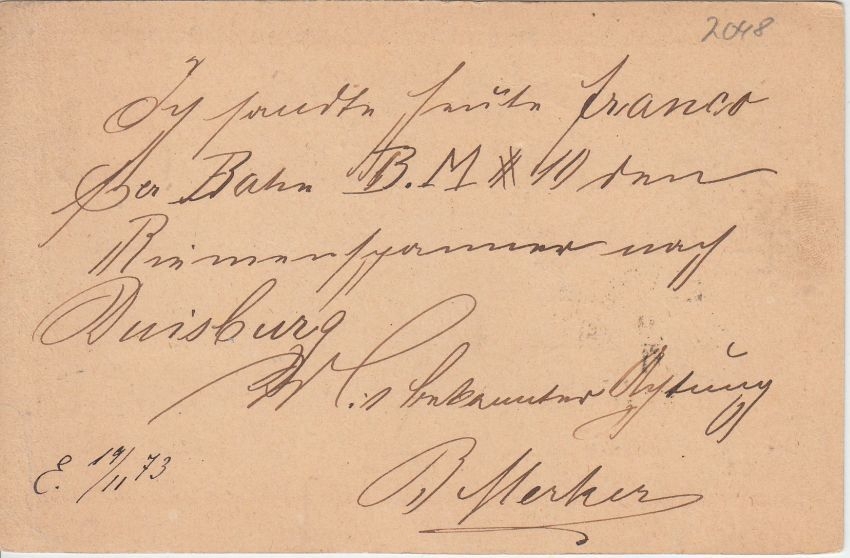 2048
Ich sandte heute franco
per Bahn B.M # 10 den
Riemenspanner nach
Duisburg
bekannter Achtung
B Merker
E. 19/11 73